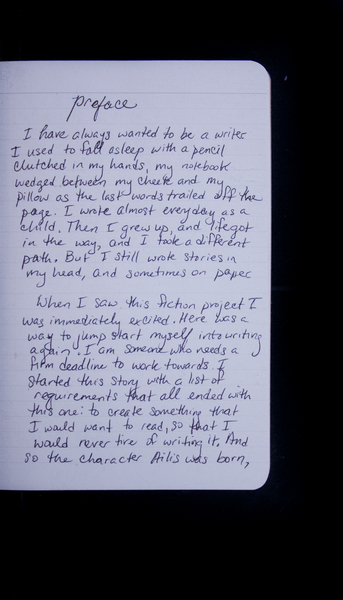 Preface
I have always wanted to be a writer
I used to fall asleep with a pencil
clutched in my hands, my notebook
wedged between my cheek and my
pillow as the last words trailed off the
page. I wrote almost everyday as a
child. Then I grew up, and life got
in the way, and I took a different
path. But I still wrote stories in
my head, and sometimes on paper
When I saw this fiction project I
was immediately excited. Here was a
way to jump start myself into writing
again. I am someone who needs a
firm deadline to work towards. I
started this story with a list of
requirements that all ended with
this one: to create something that
I would want to read, so that I
would never tire of writing it. And
so the character Ailis was born,